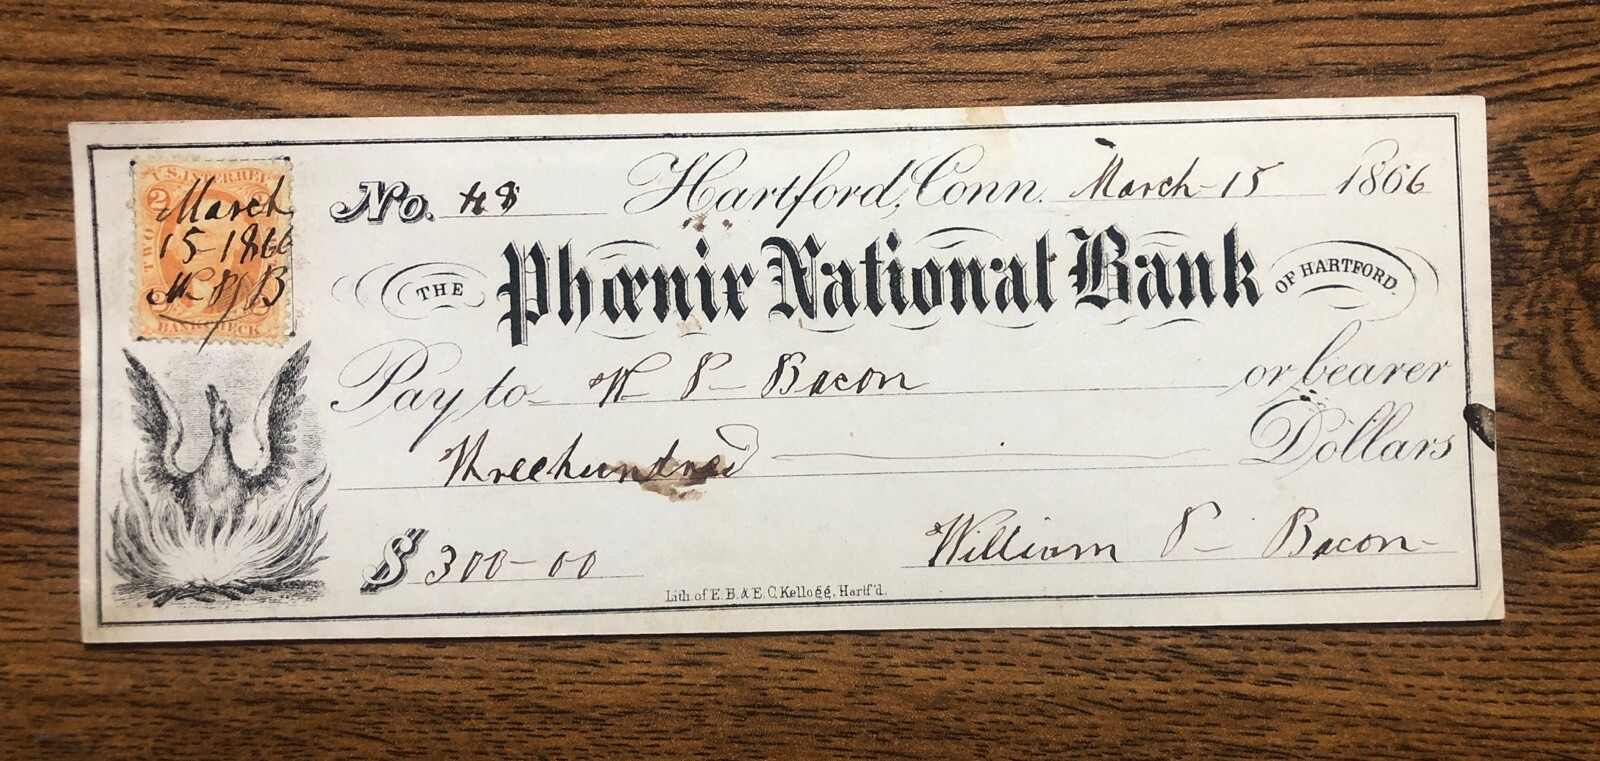 U.S. INTER. REV.
2
TWO
March
15-1866
W P B
BANK CHECK
No. 48 Hartford, Conn. March-15 1866
THE Phœnix National Bank OF HARTFORD.
Pay to W P- Bacon or bearer
Three hundred Dollars
$ 300-00 William P- Bacon-
Lith. of E. B. & E. C. Kellogg, Hartf'd.